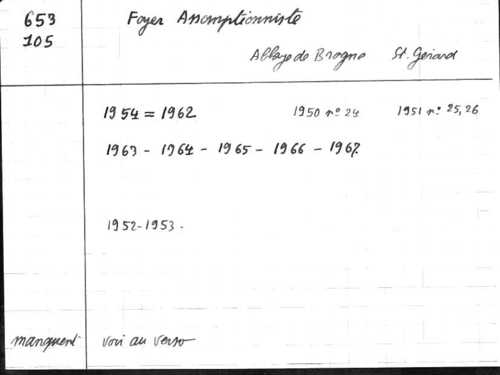 653 Foyer Assomptionniste
105
Abbaye de Brogne St. Gérard
1954 = 1962 1950 n° 24 1951 n° 25, 26
1963 - 1964 - 1965 - 1966 - 1967
1952-1953.
manquent voir au verso